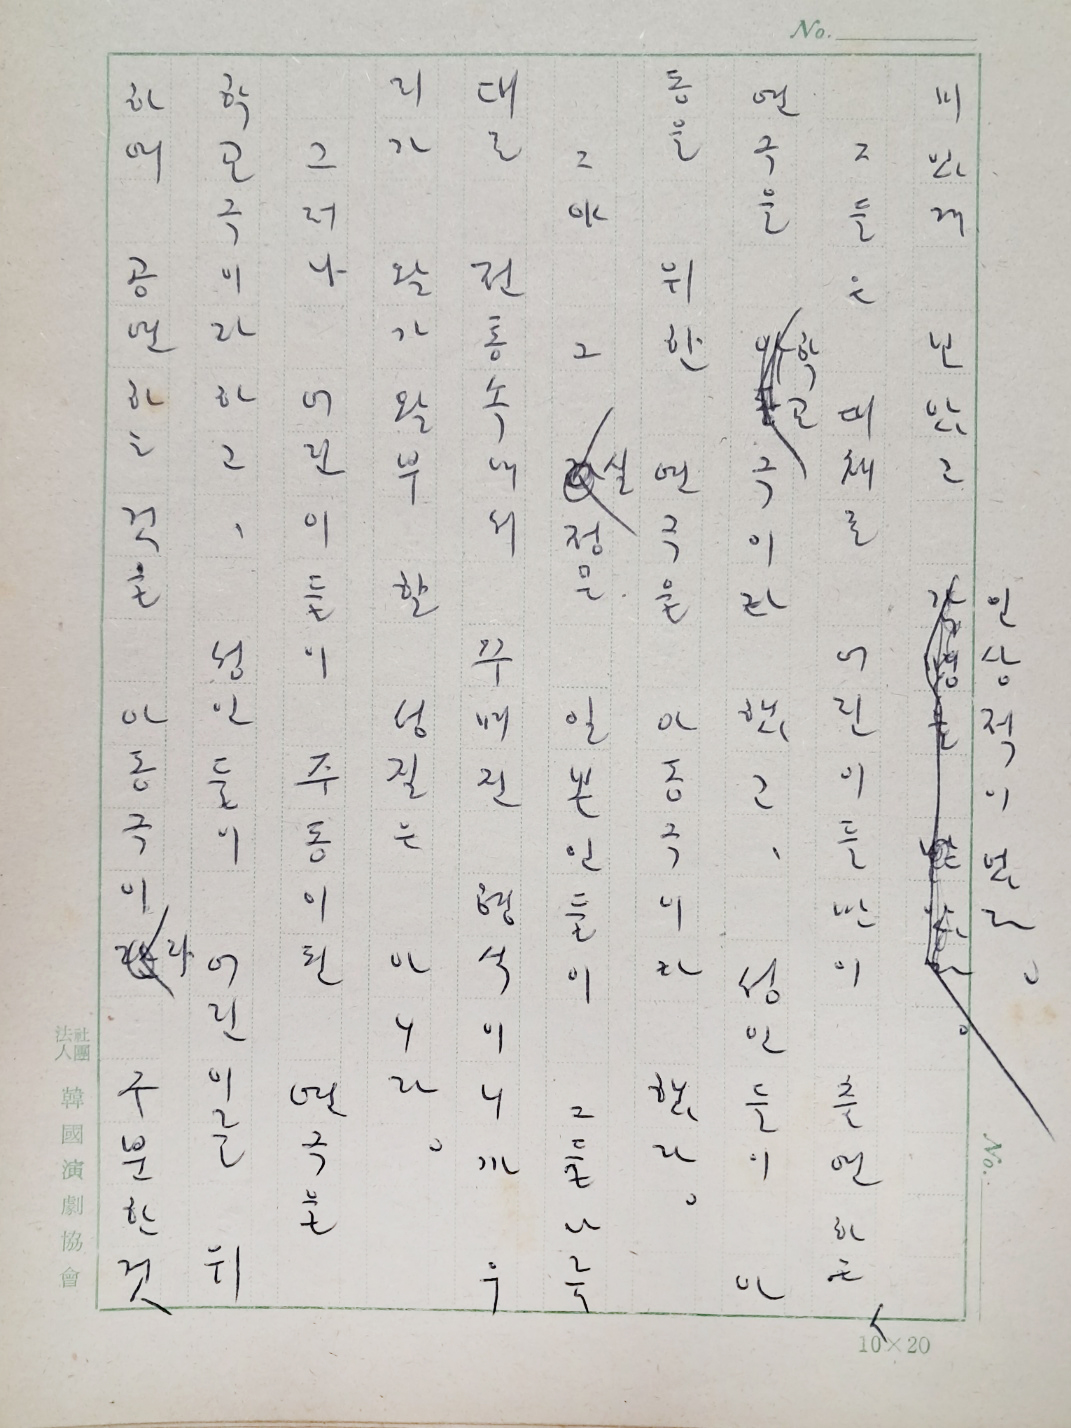 No.
피난처 난 았고
인상적이었다。
그들은 대체로 어린이들만이 출연하는
연극을 학교극이라 했고、 성인들이 아
동을 위한 연극을 아동극이라 했다。
그야 그 실정은 일본인들이 그들나름
대로 전통속에서 꾸며진 형식이니까 우
리가 왈가왈부 할 성질은 아니다。
그러나 어린이들이 주동이 된 연극을
학교극이라 하고、 성인들이 어린이를 위
하여 공연하는 것은 아동극이라 구분한 것
社團法人 韓國演劇協會
No.
10×20